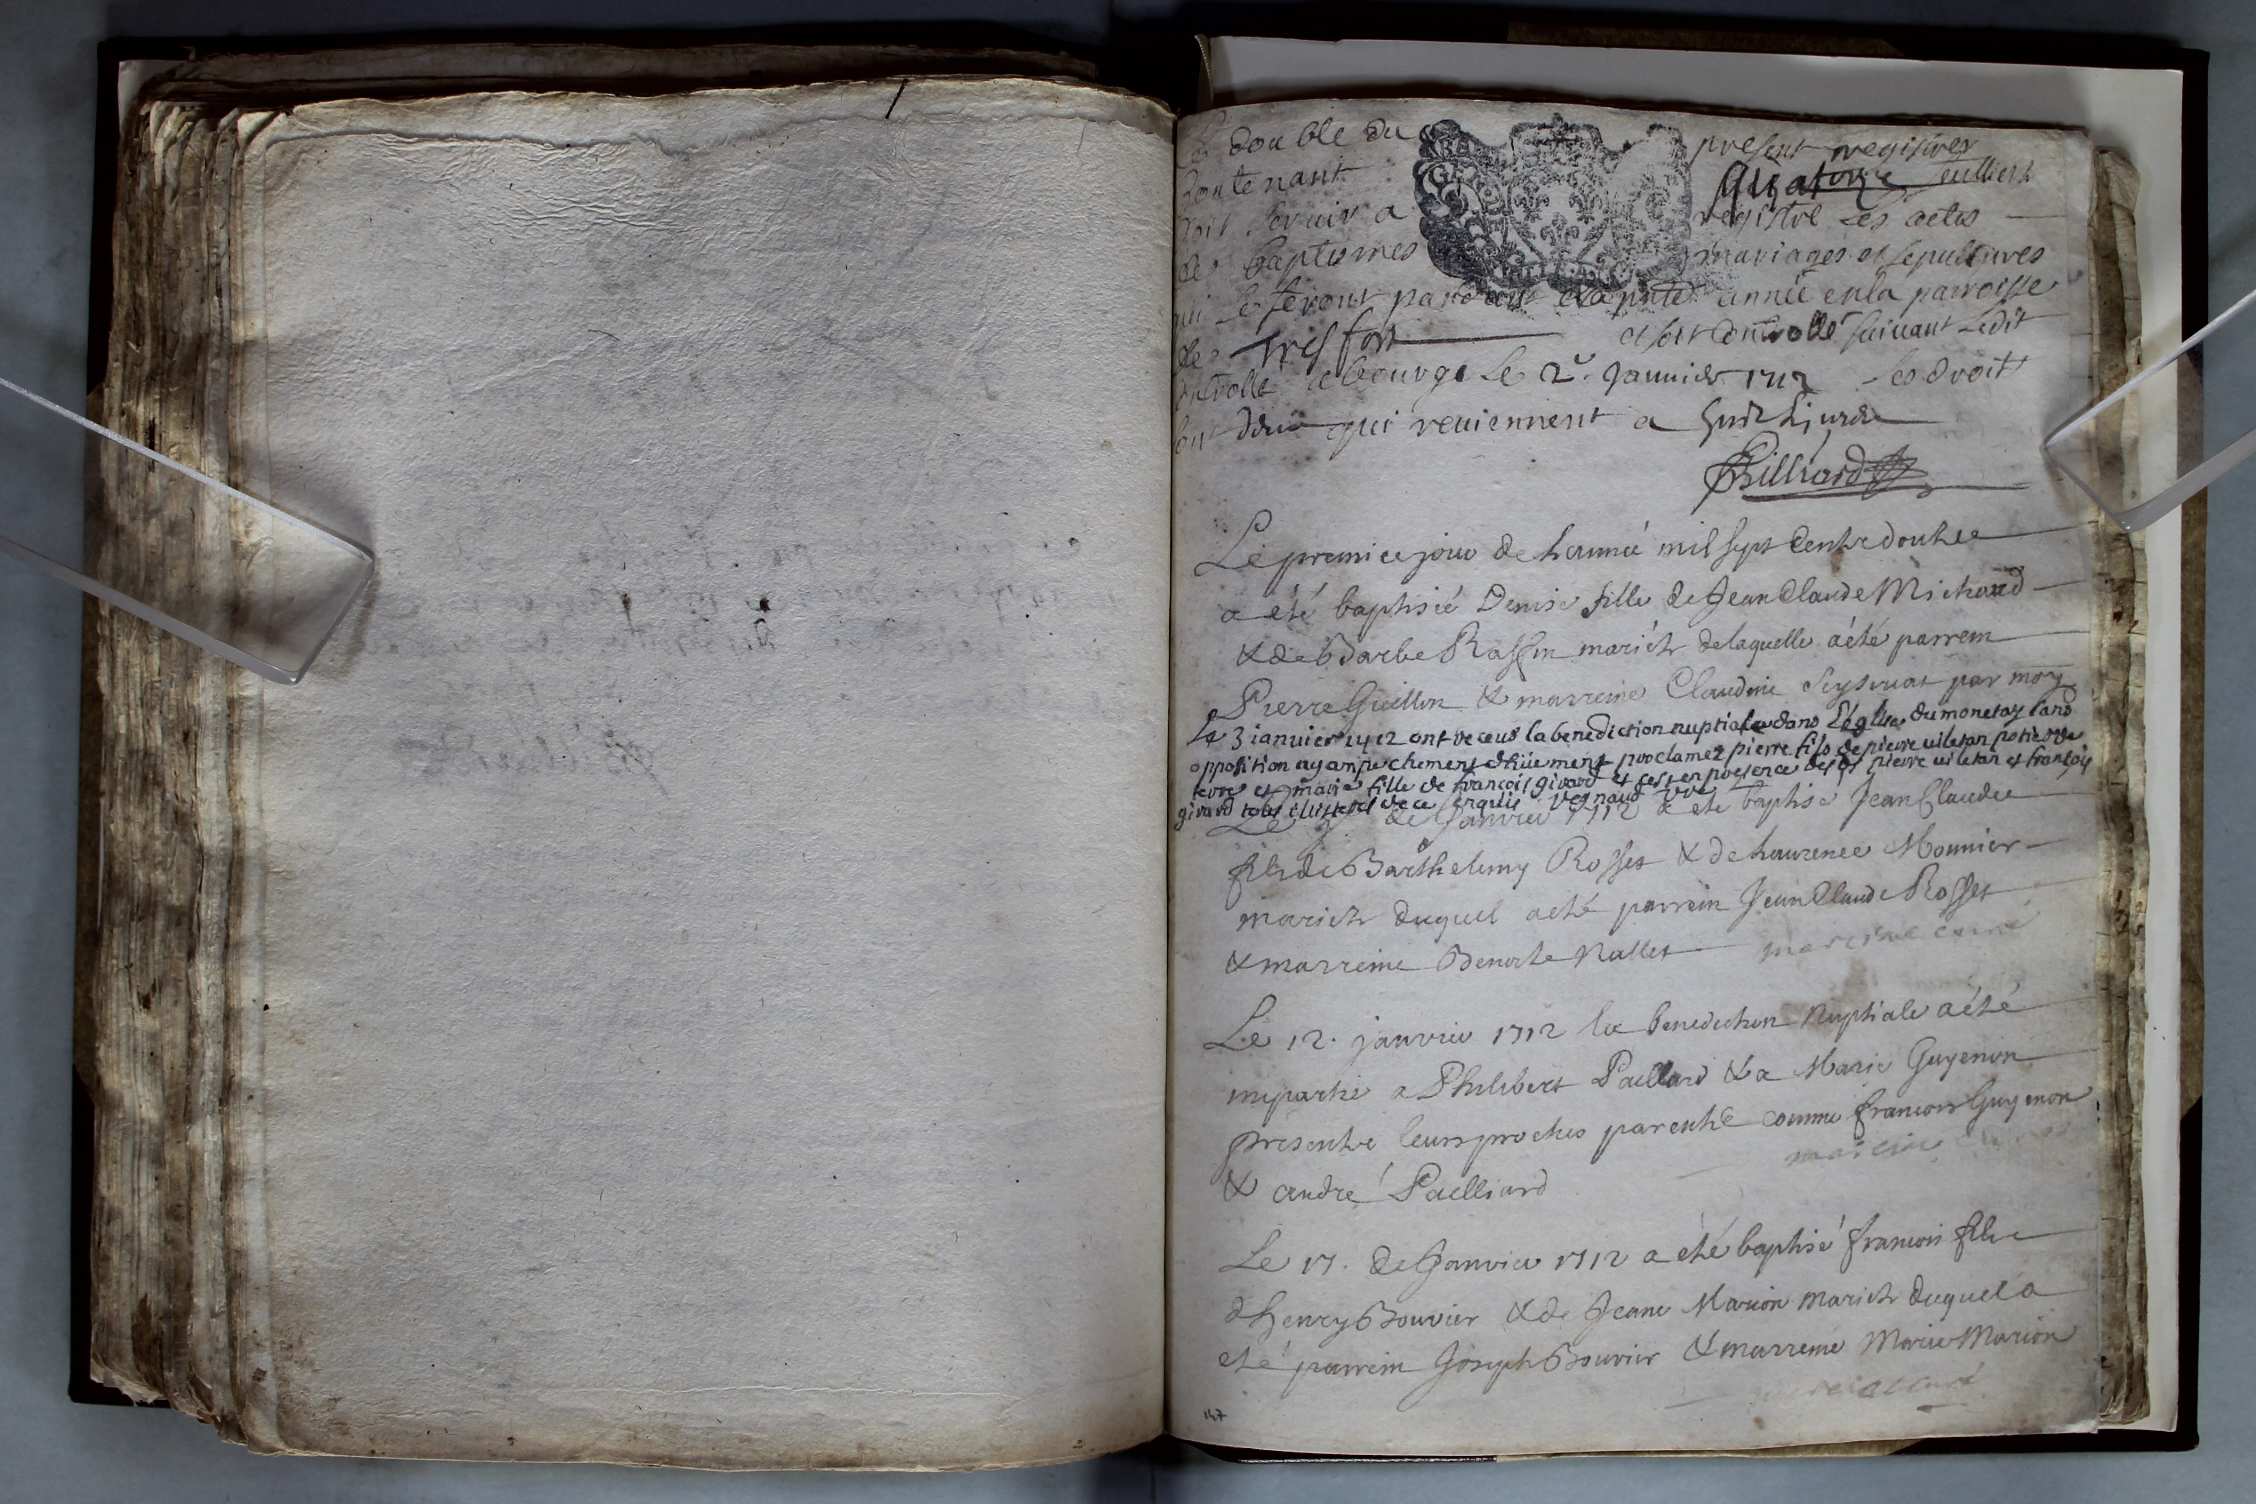 Le double du present registres
Contenant Quatorze feulliets
doit servir a registre les actes
de baptesmes mariages et sepultures
qui se feront pandant la pnte année en la parroisse
de Tresfort et soit controllé suivant ledit
controlle a bourg le 2e. Januier 1712 les droit
qui reuiennent a huit Liurde
Billiard
Le premice jour de l'année mil sept cents douhse
a eté baptisée Denise fille de Jean Claude Michard
& de Barbe Raffin mariés de laquelle a été parrein
Pierre Guillon & marreine Claudine par moy
Le 3 ianuier 1712 ont receus la benediction nuptiale dans l'église du monetay sans
opposition ny ampechement dhüement proclamez pierre fils de pierre uiletan potier de
terre et marie fille de françois girard et ces en presence desds pierre uiletan et françois
girard tous illisteres de ce enquis Vernaud
Le de Janvier 1712 a eté baptisé Jean Claude
fils de Barthelemy Rosset & de Laurence Monnier
mariés duquel a eté parrein Jean Claude Rosset
& marreine Benoite Nallet curé
Le 12. janvier 1712 la benediction Nuptiale a été
impartie a Philibert Paillard & a Marie Guyenon
presents leurs proches parents comme francois Guyenon
& andré Pailliard
Le 17. de Janvier 1712 a eté baptisé francois fils
d'henry Bouvier & de Jeane Marion mariés duquel a
eté parrein Joseph Bouvier & marreine Marie Marion
curé
147